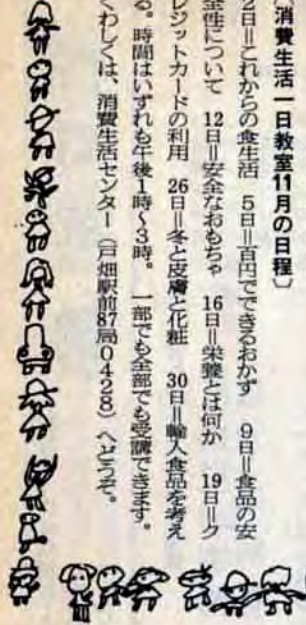 〔消費生活一日教室11月の日程〕
2日＝これからの食生活　5日＝百円でできるおかず　9日＝食品の安
全性について　12日＝安全なおもちゃ　16日＝栄養とは何か　19日＝ク
レジットカードの利用　26日＝冬と皮膚と化粧　30日＝輸入食品を考え
る。時間はいずれも午後1時〜3時。　一部でも全部でも受講できます。
くわしくは、消費生活センター（戸畑駅前87局0428）へどうぞ。